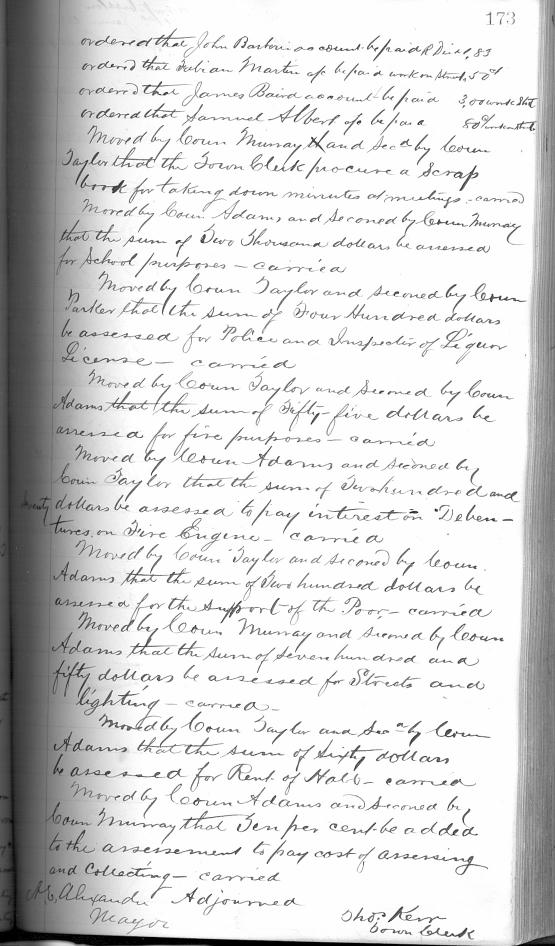 173
ordered that John Barbour account be paid R Divd ,83
ordered that Fabian Martin a/c be paid work on Street, 50cts
ordered that James Baird account be paid 3,00 work Strt
ordered that Samuel Albert a/c be paid 80cts work on streets
Moved by Coun Murray and Secd by Coun
Taylor that the Town Clerk procure a Scrap
book for taking down minutes at meetings - carried
Moved by Coun Adams and seconed by Coun Murray
that the sum of Two Thousand dollars be assessed
for School purposes - carried
Moved by Coun Taylor and seconed by Coun
Parker that the sum of Four Hundred dollars
be assessed for Police and Inspector of Liquor
License - carried
Moved by Coun Taylor and Seconed by Coun
Adams that the sum of Fifty-five dollars be
assessed for fire purposes - carried
Moved by Coun Adams and seconed by
Coun Taylor that the sum of Two hundred and
twenty dollars be assessed to pay interest on Deben-
tures on Fire Engine - carried
Moved by Coun Taylor and seconed by Coun
Adams that the sum of Two hundred dollars be
assessed for the support of the Poor - carried
Moved by Coun Murray and seconed by Coun
Adams that the sum of seven hundred and
fifty dollars be assessed for Streets and
lighting - carried -
Moved by Coun Taylor and Secd by Coun
Adams that the sum of Sixty dollars
be assessed for Rent of Hall - carried
Moved by Coun Adams and seconed by
Coun Murray that Ten per cent be added
to the assessement to pay cost of assessing
and Collecting - carried
Alexander Adjourned
Mayor
Thos Kerr
Town Clerk